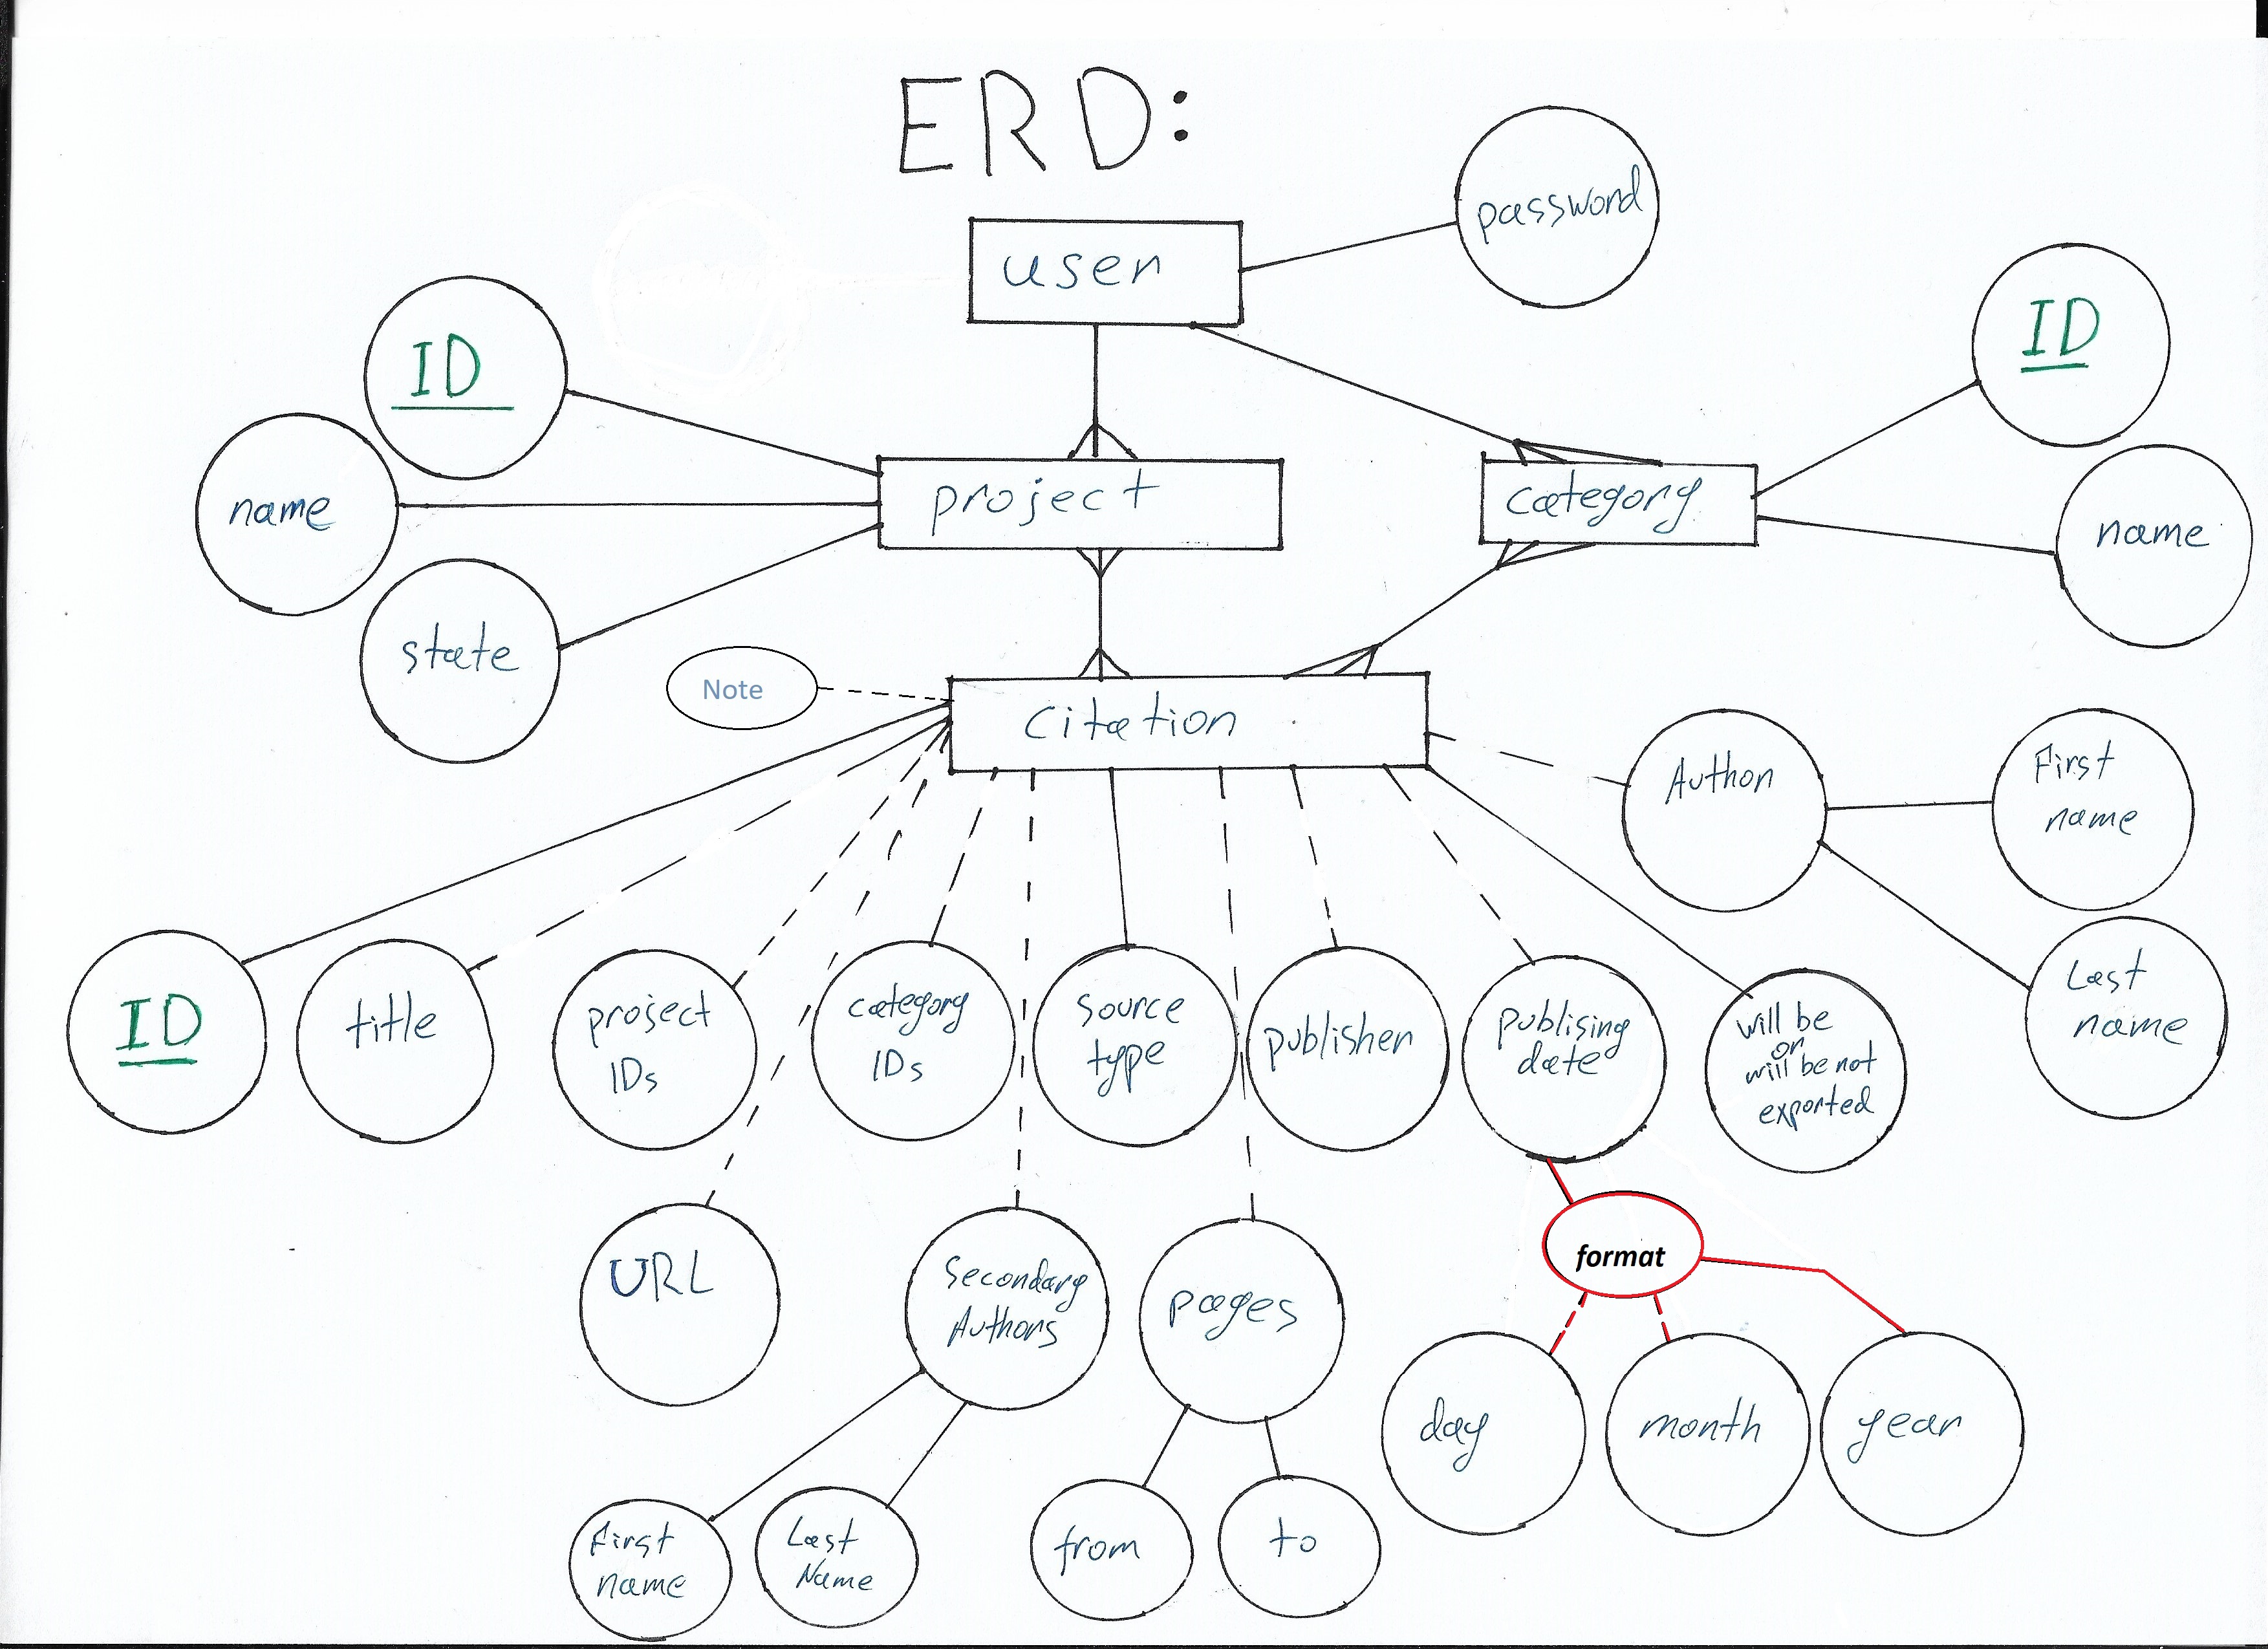 ERD:
password
user
ID
ID
name
project
category
name
state
Note
citation
Author
First
name
Last
name
ID
title
project
IDs
category
IDs
source
type
publisher
publising
date
will be
or
will be not
exported
URL
Secondary
Authors
pages
format
day
month
year
First
name
Last
Name
from
to